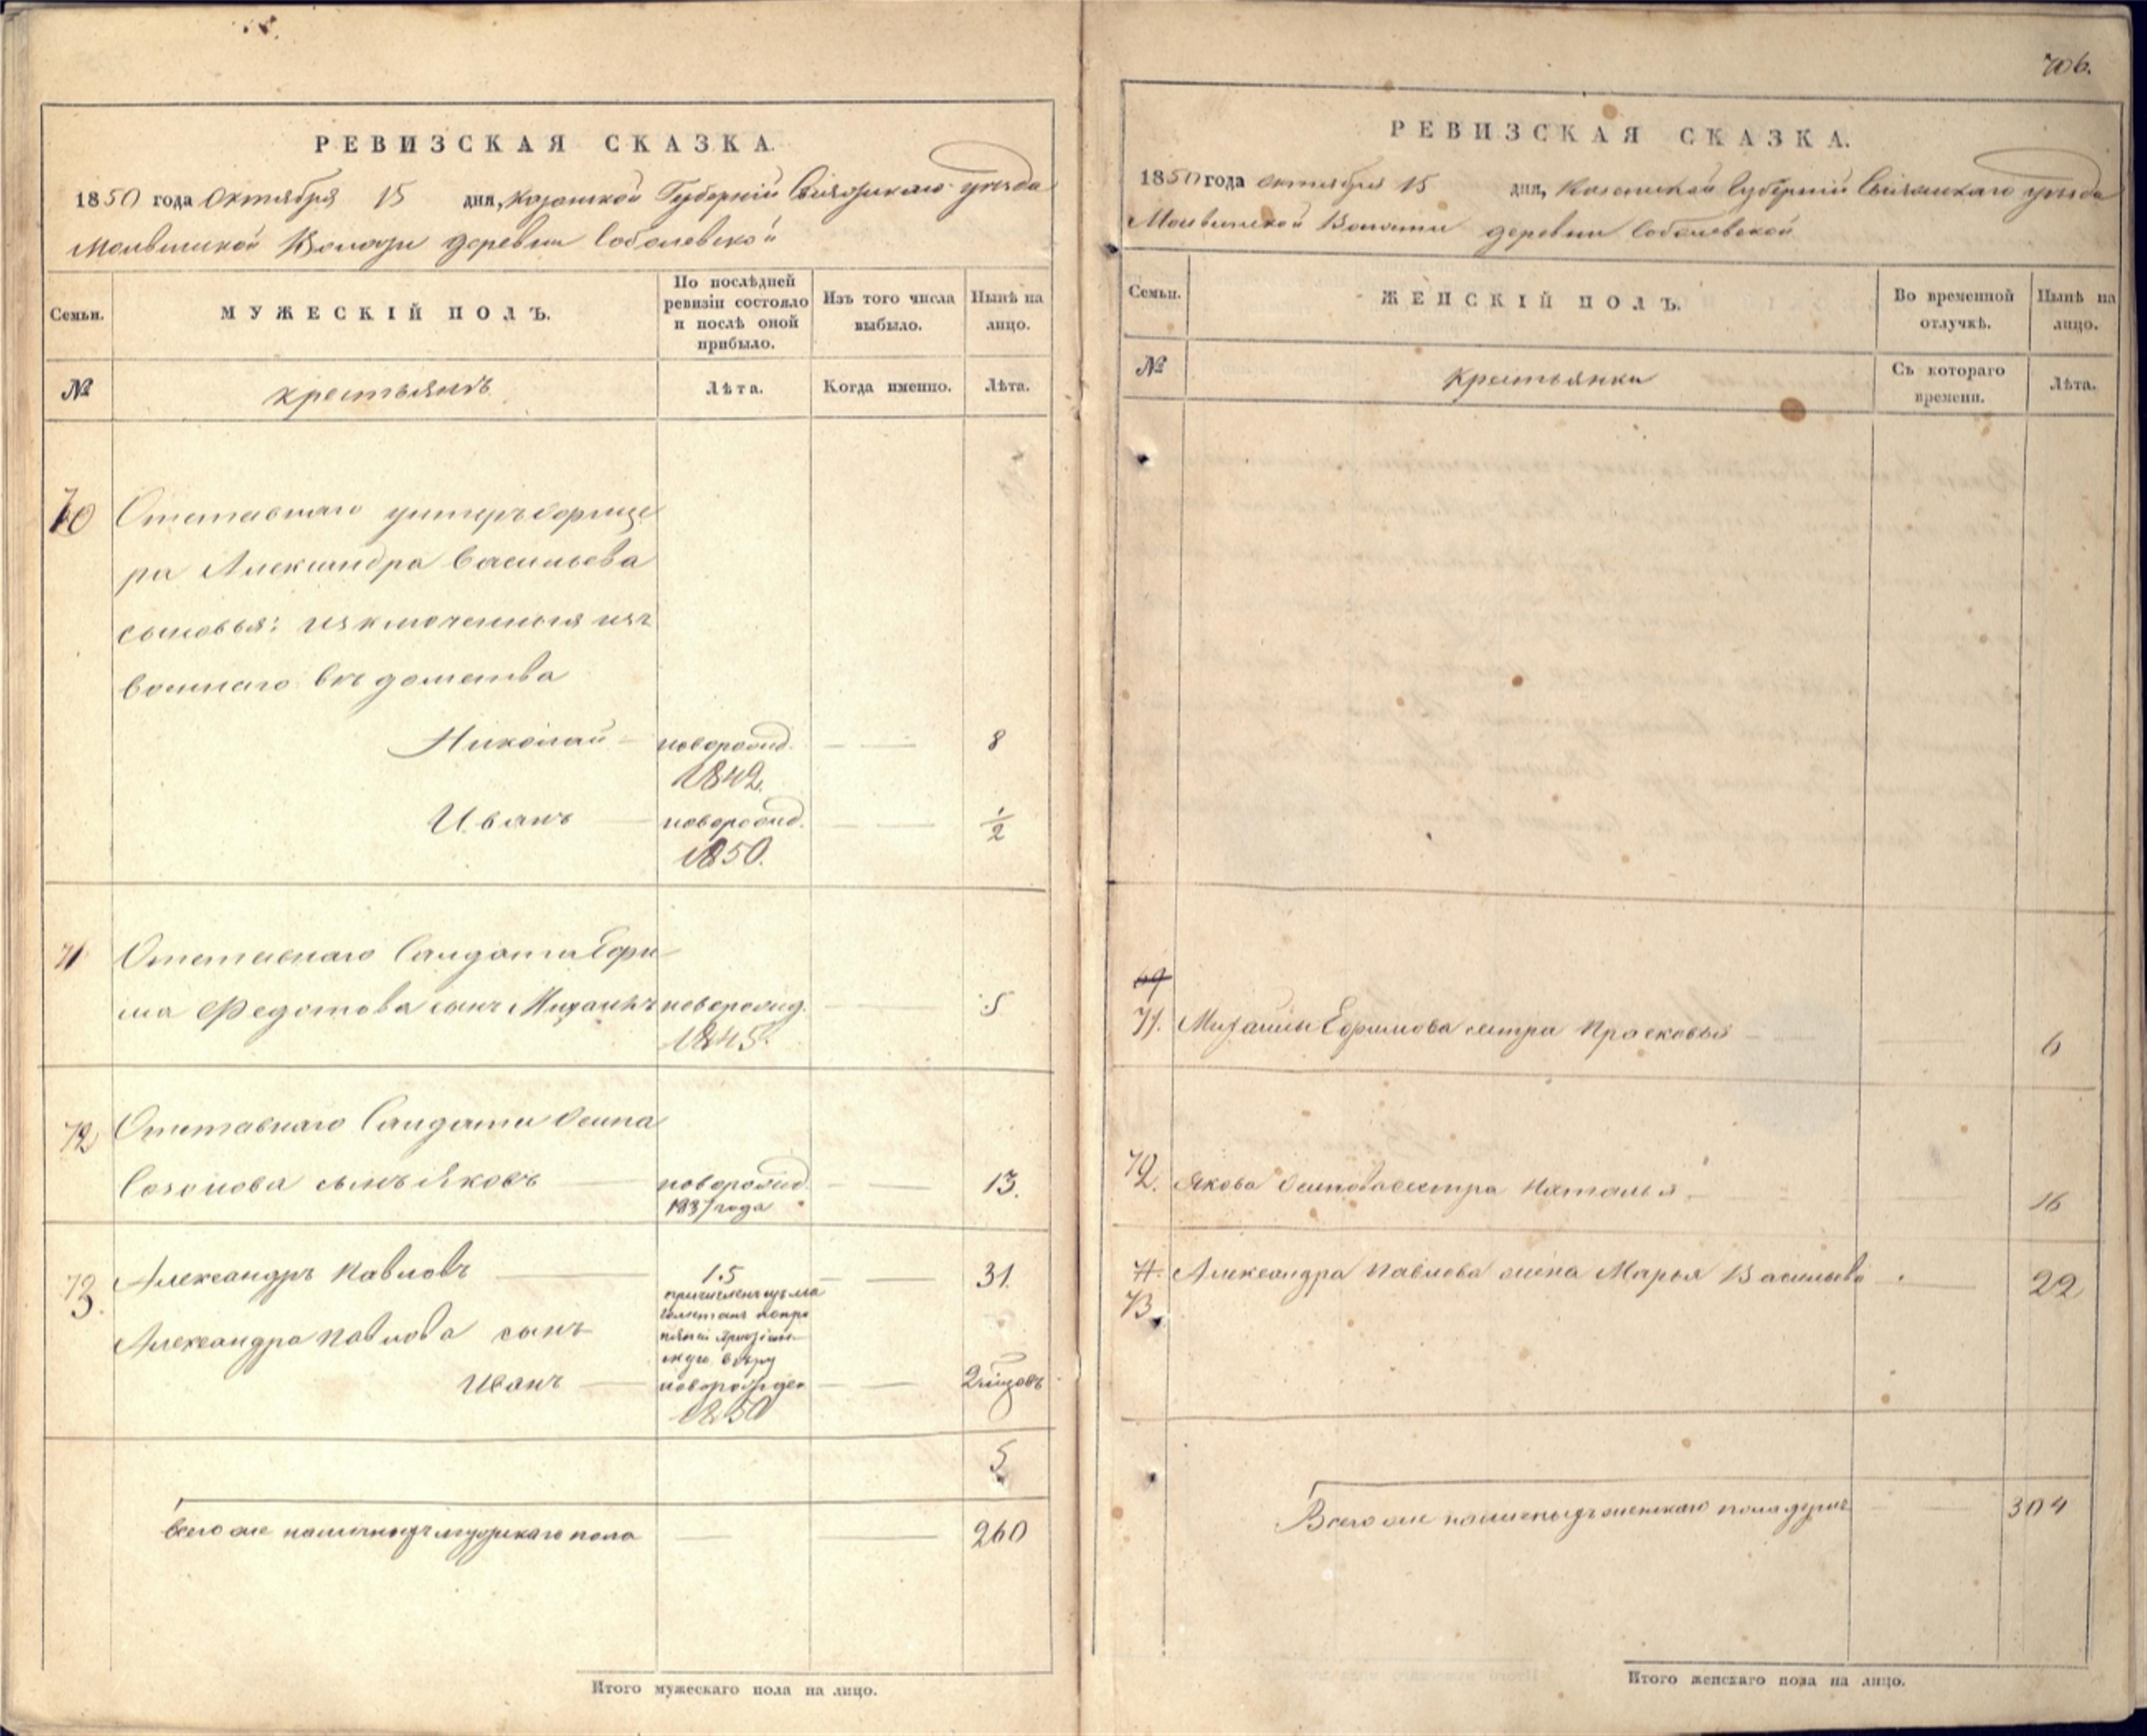 706.
РЕВИЗСКАЯ СКАЗКА.
1850 года Октября 15 дня, Казанской Губерніи Свіяжскаго уѣзда
Волости деревни Соболевской
Семьи.
МУЖЕСКІЙ ПОЛЪ.
По послѣдней ревизіи состояло и послѣ оной прибыло.
Изъ того числа выбыло.
Нынѣ на лицо.
№
крестьянъ
Лѣта.
Когда именно.
Лѣта.
70 Отставнаго унтеръ офице
ра Александра Васильева
сыновья: изключенныя изъ
военнаго вѣдомства
Николай новорожд. 8
1842.
Иванъ новорожд. 1/2
1850.
71 Отставнаго Салдата Ефи
ма Федотова сынъ Михаилъ новорожд. 5
1845.
72 Отставнаго Салдата Осипа
Созонова сынъ Яковъ новорожд. 13.
1837 года
73. Александръ Павловъ 15 31.
причисленъ изъ ма
гометанъ
вѣру
Александра Павлова сынъ
Иванъ новорожден
1850
5
Всего же наличныхъ мужскаго пола 260
Итого мужескаго пола на лицо.
РЕВИЗСКАЯ СКАЗКА.
1850 года октября 15 дня, Казанской Губерніи Свіяжскаго уѣзда
Волости деревни Соболевской
Семьи.
ЖЕНСКІЙ ПОЛЪ.
Во временной отлучкѣ.
Нынѣ на лицо.
№
крестьянки
Съ котораго времени.
Лѣта.
69
71. Михаилы Ефимова сестра Прасковья 6
72. Якова Осипова сестра Наталья 16
73 Александра Павлова жена Марья Васильева 22
Всего же наличныхъ женскаго пола душъ 304
Итого женскаго пола на лицо.